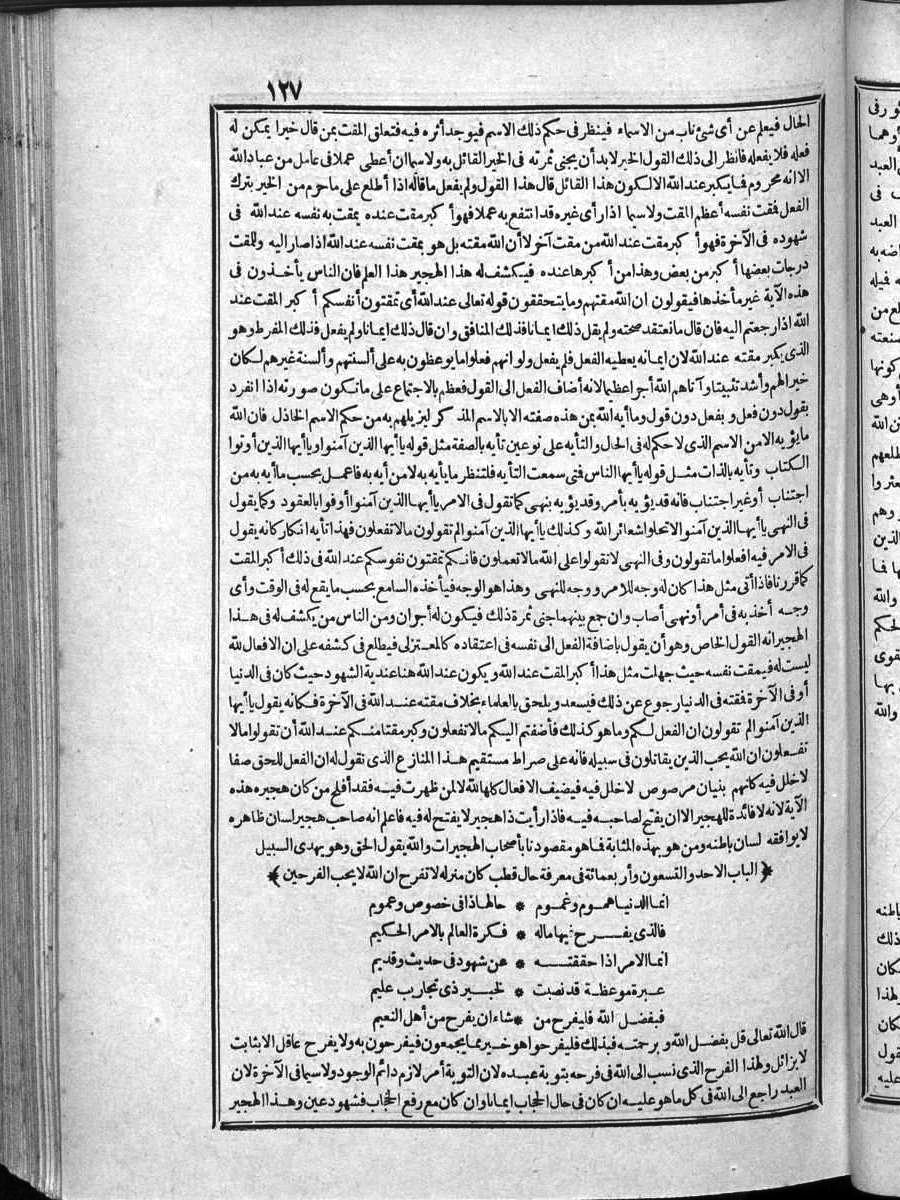 ١٢٧
الحال فيعلم عن أى شئ ناب من الاسماء فينظر فى حكم ذلك الاسم فيوجد أثره فيه فتعلق المقت بمن قال خيرا يمكن له
فعله فلا يفعله فانظر الى ذلك القول الخير لا بد أن يجنى ثمرته فى الخير القائل به ولا سيما ان أعطى عملا فى عامل من عباد الله
الا انه محروم فما يكبر عند الله الا لكون هذا القائل قال هذا القول ولم يفعل ما قاله اذا أطلع على ما حرم من الخير بترك
الفعل فمقت نفسه أعظم المقت ولا سيما اذا رأى غيره قد انتفع به عملا فهو أكبر مقت عنده يمقت به نفسه عند الله فى
شهوده فى الآخرة فهو أكبر مقت عند الله من مقت آخر لا أن الله مقته بل هو يمقت نفسه عند الله اذا صار اليه وللمقت
درجات بعضها أكبر من بعض وهذا من أكبرها عنده فيكشف له هذا الهجير هذا العلم فان الناس يأخذون فى
هذه الآية غير مأخذها فيقولون ان الله مقتهم وما يتحققون قوله تعالى عند الله أى تمقتون أنفسكم أكبر المقت عند
الله اذا رجعتم اليه فان قال ما نعتقد صحته ولم يقل ذلك ايمانا فذلك المنافق وان قال ذلك ايمانا ولم يفعل فذلك المفرط وهو
الذى يكبر مقته عند الله لان ايمانه يعطيه الفعل فلم يفعل ولو انهم فعلوا ما يوعظون به على ألسنتهم وألسنة غيرهم لكان
خيرا لهم وأشد تثبيتا وآتاهم الله أجرا عظيما لانه أضاف الفعل الى القول فعظم بالاجتماع على ما تكون صورته اذا انفرد
بقول دون فعل وبفعل دون قول وما أيه الله بمن هذه صفته الا بالاسم المذكر ليزيلهم به من حكم الاسم الخاذل فان الله
ما يؤيه الا من الاسم الذى لا حكم له فى الحال والتأيه على نوعين تأيه بالصفة مثل قوله يا أيها الذين آمنوا ويا أيها الذين أوتوا
الكتاب وتأيه بالذات مثل قوله يا أيها الناس فتى سمعت التأيه فلتنظر ما يأيه به لا من أيه به فاعمل بحسب ما أيه به من
اجتناب أو غير اجتناب فانه قد يؤيه بأمر وقد يؤيه بنهى كما تقول فى الامر يا أيها الذين آمنوا أوفوا بالعقود وكما يقول
فى النهى يا أيها الذين آمنوا لا تحلوا شعائر الله وكذلك يا أيها الذين آمنوا لم تقولون ما لا تفعلون فهذا تأيه انكار كانه يقول
فى الامر فيه افعلوا ما تقولون وفى النهى لا تقولوا على الله ما لا تعملون فانكم تمقتون نفوسكم عند الله فى ذلك أكبر المقت
كما قررنا فاذا أتى مثل هذا كان له وجه للامر ووجه للنهى وهذا هو الوجه فيأخذه السامع بحسب ما يقع له فى الوقت وأى
وجه أخذ به فى أمر أو نهى أصاب وان جمع بينهما جنى ثمرة ذلك فيكون له أجران ومن الناس من يكشف له فى هذا
الهجير انه القول الخاص وهو أن يقول باضافة الفعل الى نفسه فى اعتقاده كالمعتزلى فيطلع فى كشفه على ان الافعال لله
ليست له فيمقت نفسه حيث جهلت مثل هذا أكبر المقت عند الله ويكون عند الله هنا عندية الشهود حيث كان فى الدنيا
أو فى الآخرة فمقته فى الدنيا رجوع عن ذلك فيسعد ويلحق بالعلماء بخلاف مقته عند الله فى الآخرة فكانه يقول يا أيها
الذين آمنوا لم تقولون ان الفعل لكم وما هو كذلك فأضفتم اليكم ما لا تفعلون وكبر مقتا منكم عند الله أن تقولوا ما لا
تفعلون ان الله يحب الذين يقاتلون فى سبيله فانه على صراط مستقيم هذا المنازع الذى نقول له ان الفعل للحق صفا
لا خلل فيه كانهم بنيان مرصوص لا خلل فيه فيضيف الافعال كلها لله لا لمن ظهرت فيه فقد أفلح من كان هجيره هذه
الآية لانه لا فائدة للهجير الا ان يفتح لصاحبه فيه فاذا رأيت ذا هجير لا يفتح له فيه فاعلم انه صاحب هجير لسان ظاهره
لا يوافقه لسان باطنه ومن هو بهذه المثابة فما هو مقصودنا بأصحاب الهجيرات والله يقول الحق وهو يهدى السبيل
﴿الباب الاحد والتسعون وأربعمائة فى معرفة حال قطب كان منزله لا تفرح ان الله لا يحب الفرحين﴾
انما الدنيا هموم وغموم * حالها ذا فى خصوص وعموم
فالذى يفرح فيها ماله * فكرة العالم بالامر الحكيم
انما الامر اذا حققته * عن شهود فى حديث وقديم
عبرة موعظة قد نصبت * لخبير ذى تجاريب عليم
فبفضل الله فليفرح من * شاء ان يفرح من أهل النعيم
قال الله تعالى قل بفضل الله وبرحمته فبذلك فليفرحوا هو خير مما يجمعون فيفرحون به ولا يفرح عاقل الا بثابت
لا بزائل ولهذا الفرح الذى نسب الى الله فى فرحه بتوبة عبده لان التوبة أمر لازم دائم الوجود ولا سيما فى الآخرة لان
العبد راجع الى الله فى كل ما هو عليه ان كان فى حال الحجاب ايمانا وان كان مع رفع الحجاب فشهود عين وهذا الهجير